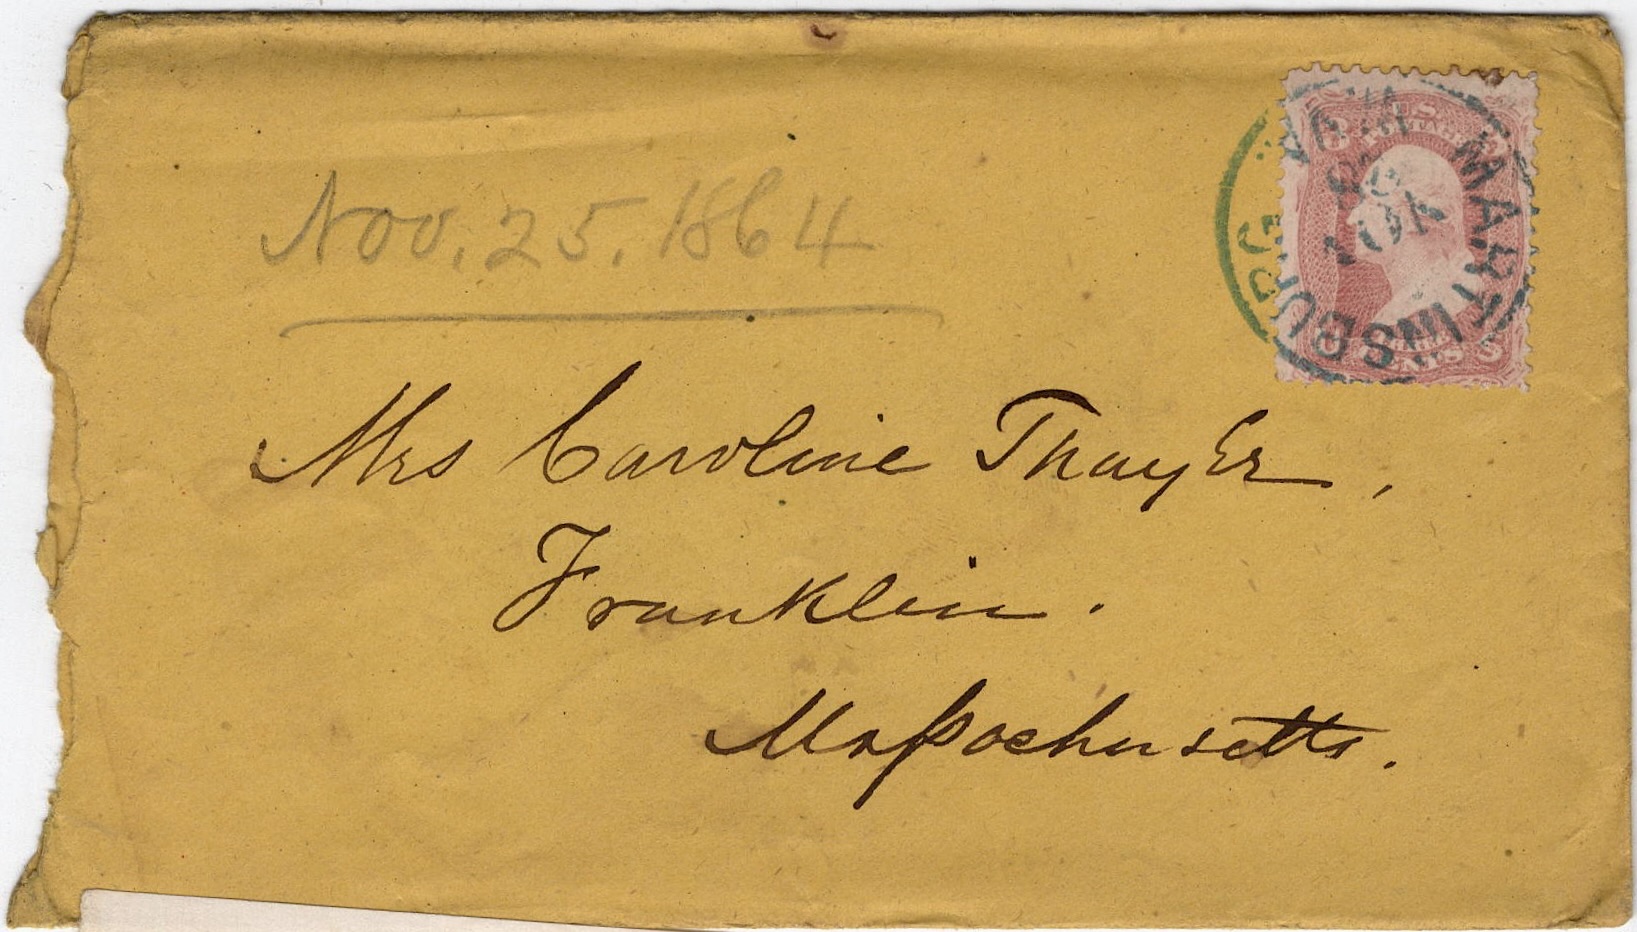 Nov. 25. 1864
Mrs Caroline Thayer,
Franklin.
Massachusetts.
MARTINSBURG
NOV
U.S. POSTAGE
CENTS
3